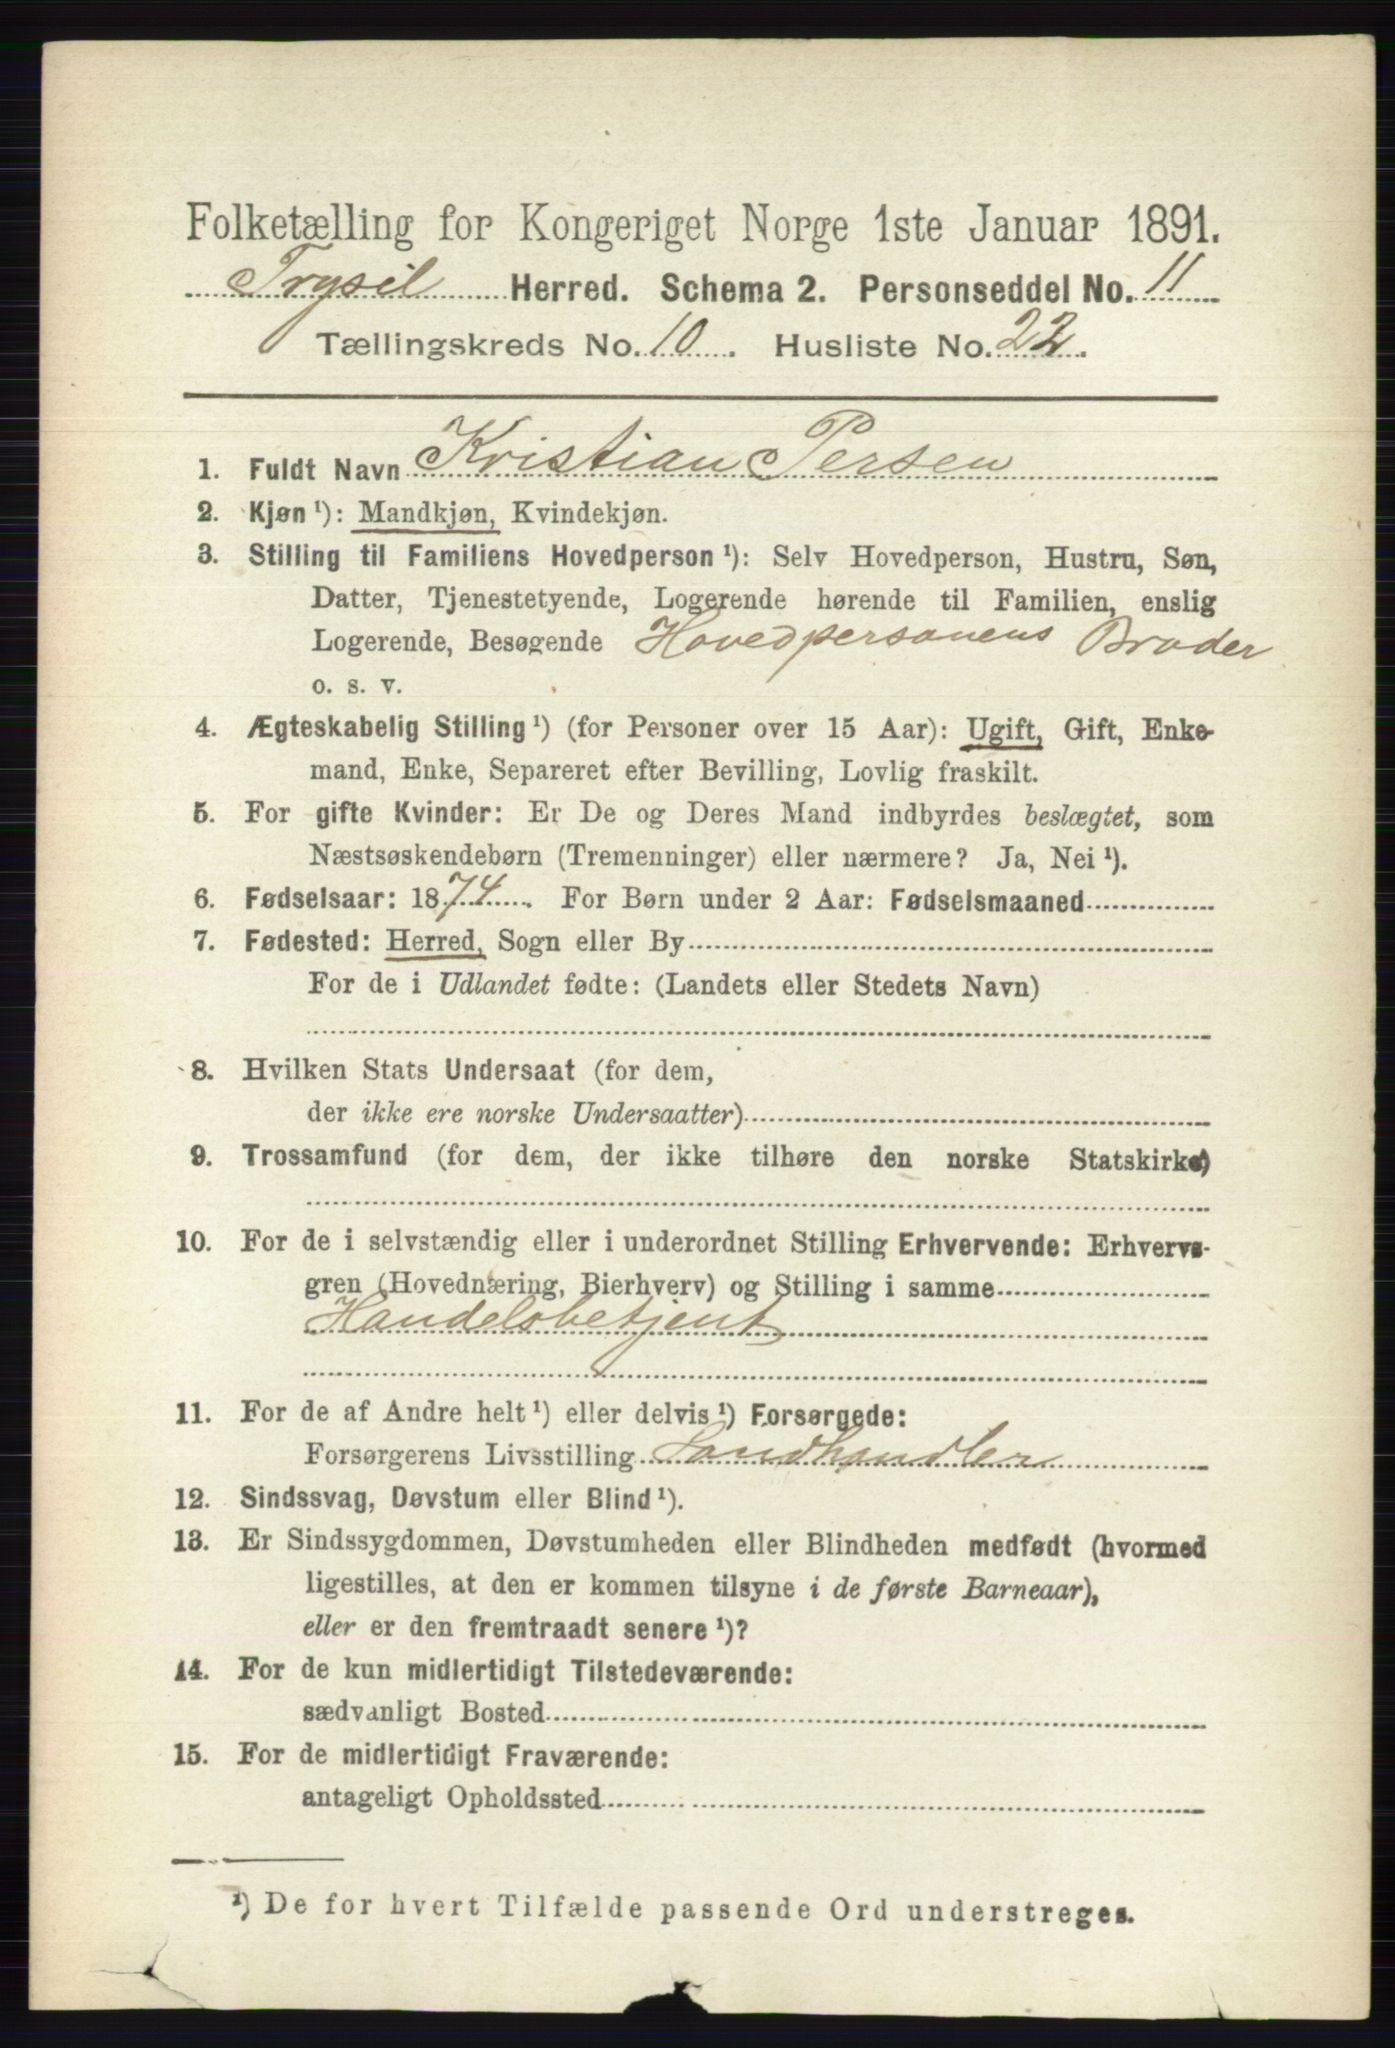 Folketælling for Kongeriget Norge 1ste Januar 1891.
Trysil Herred. Schema 2. Personseddel No. 11
Tællingskreds No. 10. Husliste No. 22.
1. Fuldt Navn Kristian Persen
2. Kjøn ¹): Mandkjøn, Kvindekjøn.
3. Stilling til Familiens Hovedperson ¹): Selv Hovedperson, Hustru, Søn,
Datter, Tjenestetyende, Logerende hørende til Familien, enslig
Logerende, Besøgende Hovedpersonens Broder
o. s. v.
4. Ægteskabelig Stilling ¹) (for Personer over 15 Aar): Ugift, Gift, Enke-
mand, Enke, Separeret efter Bevilling, Lovlig fraskilt.
5. For gifte Kvinder: Er De og Deres Mand indbyrdes beslægtet, som
Næstsøskendebørn (Tremenninger) eller nærmere? Ja, Nei ¹).
6. Fødselsaar: 1874. For Børn under 2 Aar: Fødselsmaaned
7. Fødested: Herred, Sogn eller By
For de i Udlandet fødte: (Landets eller Stedets Navn)
8. Hvilken Stats Undersaat (for dem,
der ikke ere norske Undersaatter)
9. Trossamfund (for dem, der ikke tilhøre den norske Statskirke)
10. For de i selvstændig eller i underordnet Stilling Erhvervende: Erhvervs-
gren (Hovednæring, Bierhverv) og Stilling i samme
Handelsbetjent
11. For de af Andre helt ¹) eller delvis ¹) Forsørgede:
Forsørgerens Livsstilling Landhandler
12. Sindssvag, Døvstum eller Blind ¹).
13. Er Sindssygdommen, Døvstumheden eller Blindheden medfødt (hvormed
ligestilles, at den er kommen tilsyne i de første Barneaar),
eller er den fremtraadt senere ¹)?
14. For de kun midlertidigt Tilstedeværende:
sædvanligt Bosted
15. For de midlertidigt Fraværende:
antageligt Opholdssted
¹) De for hvert Tilfælde passende Ord understreges.